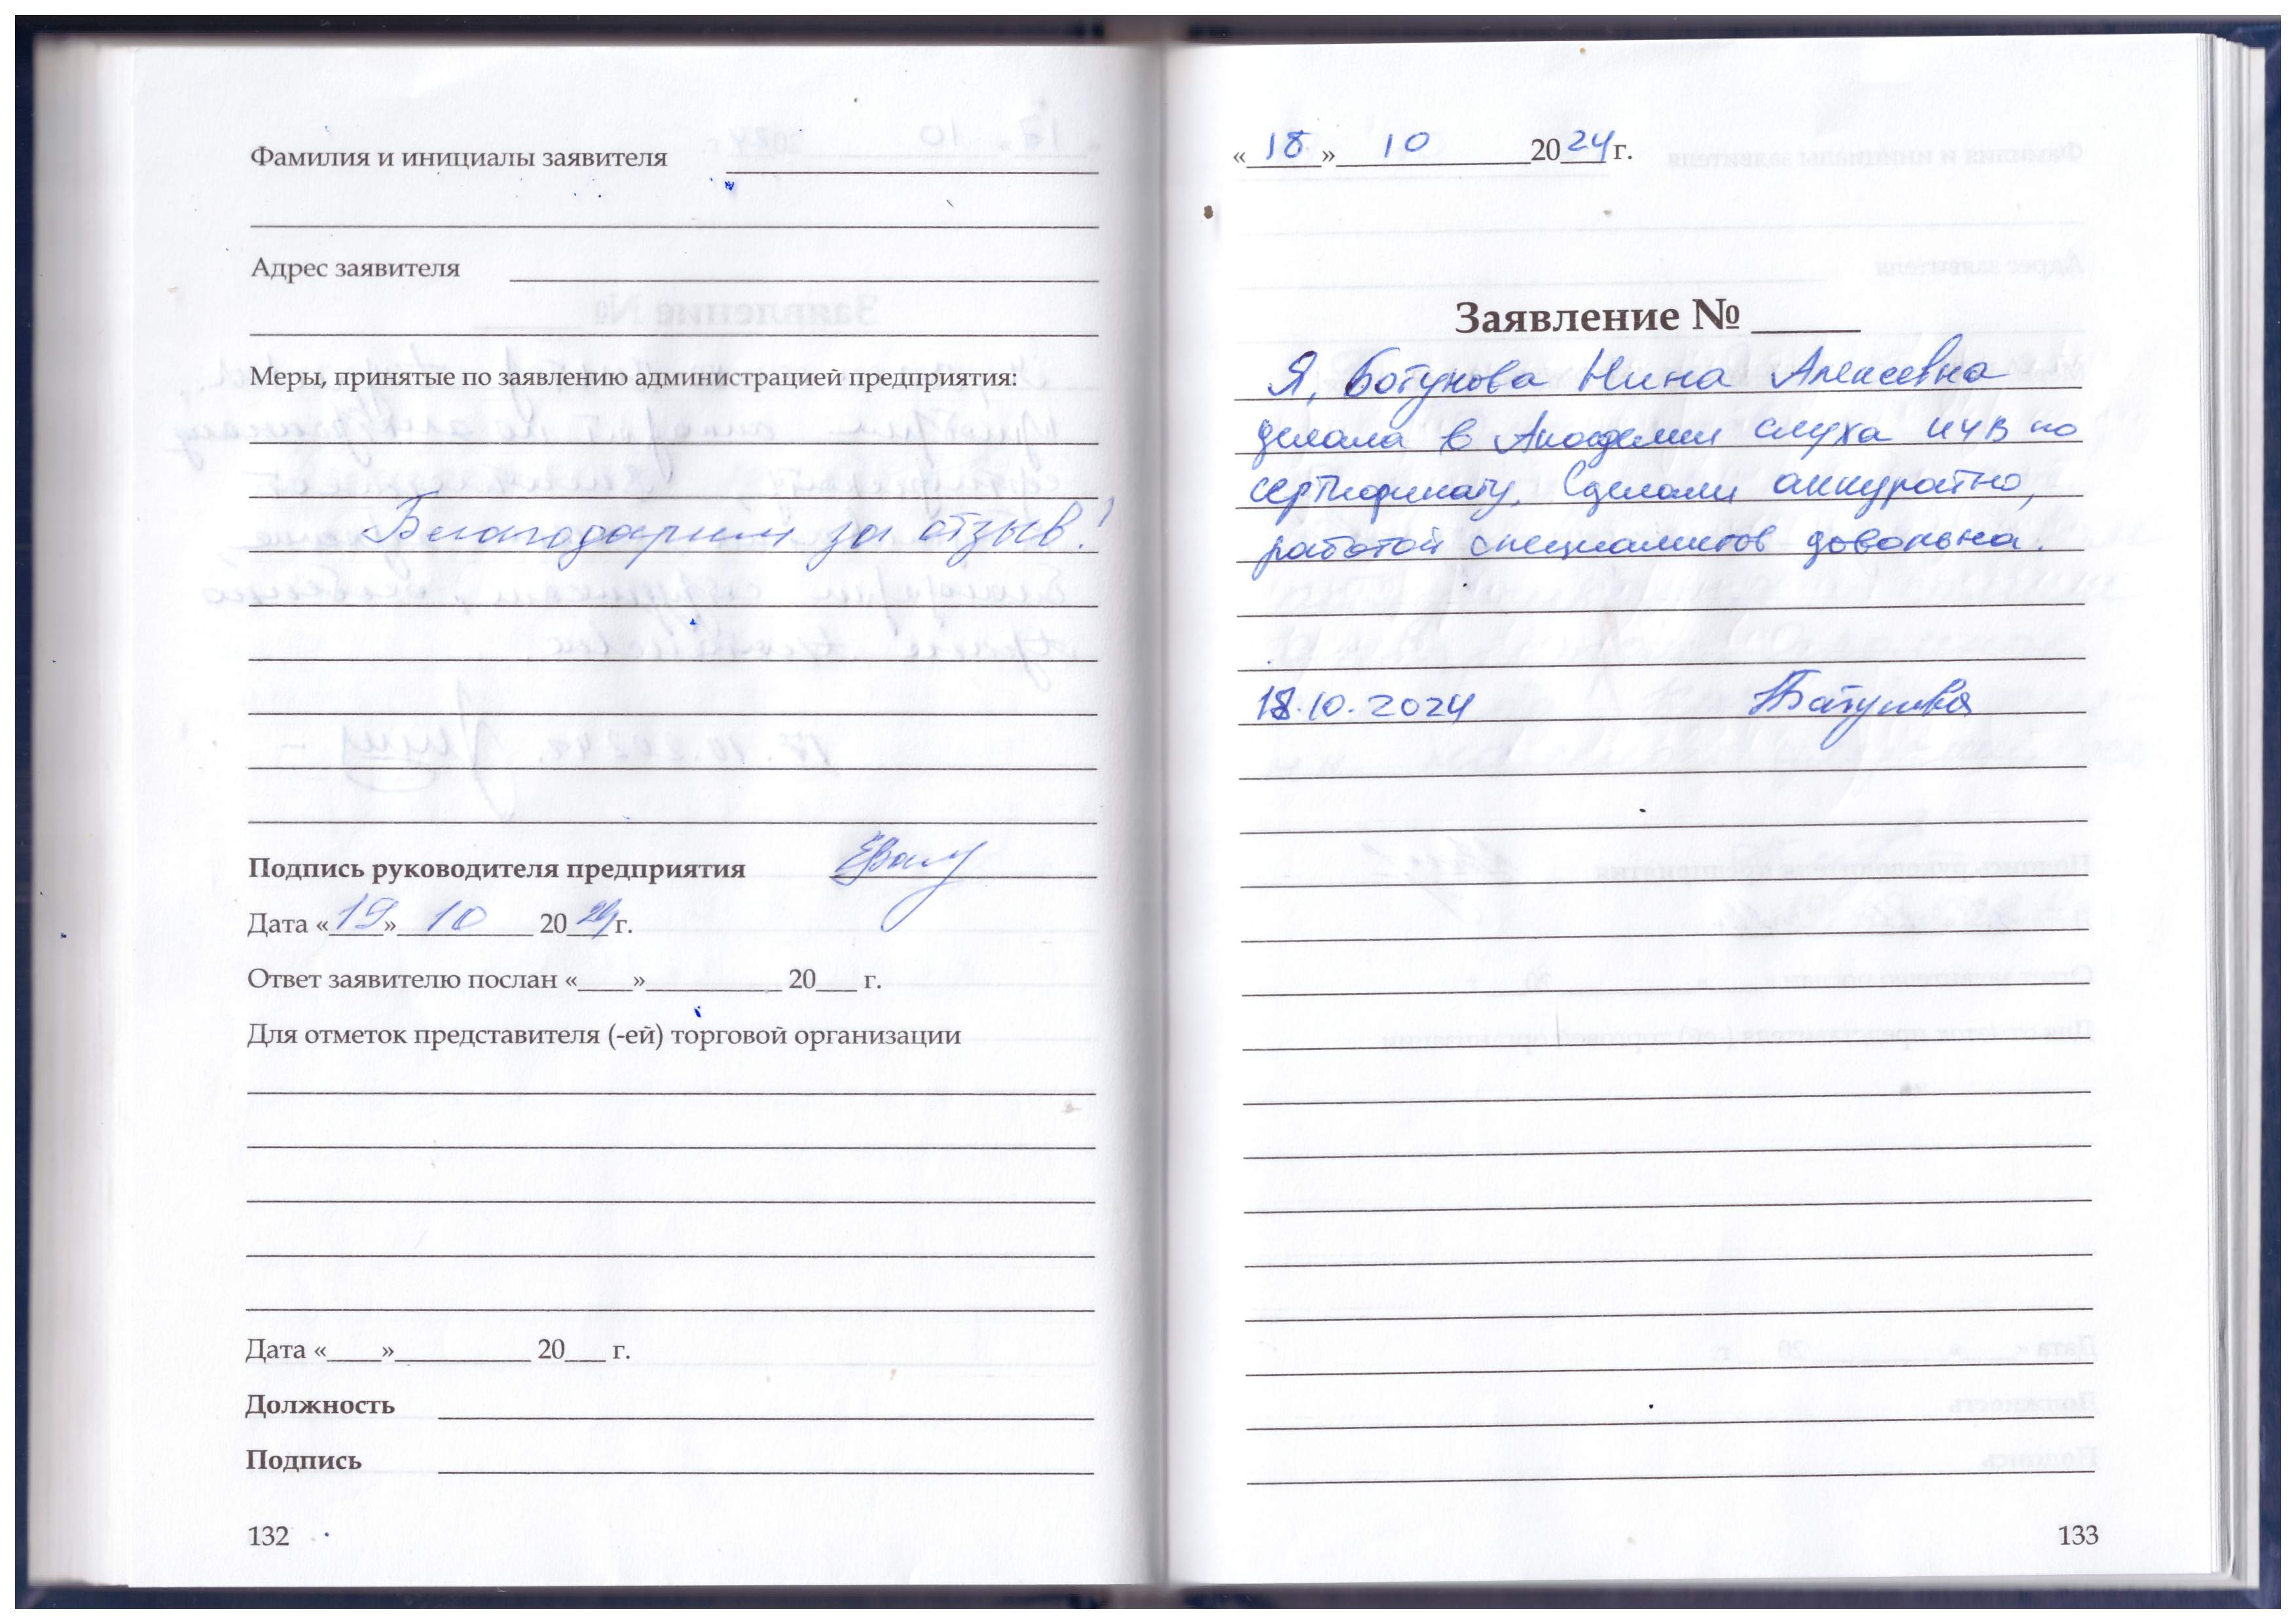 Фамилия и инициалы заявителя
Адрес заявителя
Меры, принятые по заявлению администрацией предприятия:
Благодарим за отзыв!
Подпись руководителя предприятия
Дата «19» 10 2024 г.
Ответ заявителю послан «____»__________ 20___ г.
Для отметок представителя (-ей) торговой организации
Дата «____»__________ 20___ г.
Должность
Подпись
132
«18» 10 2024 г.
Заявление № _____
Я, Батунова Нина Алексеевна
делала в Академии слуха ИЧВ по
сертификату. Сделали аккуратно,
работой специалистов довольна.
18.10.2024
133